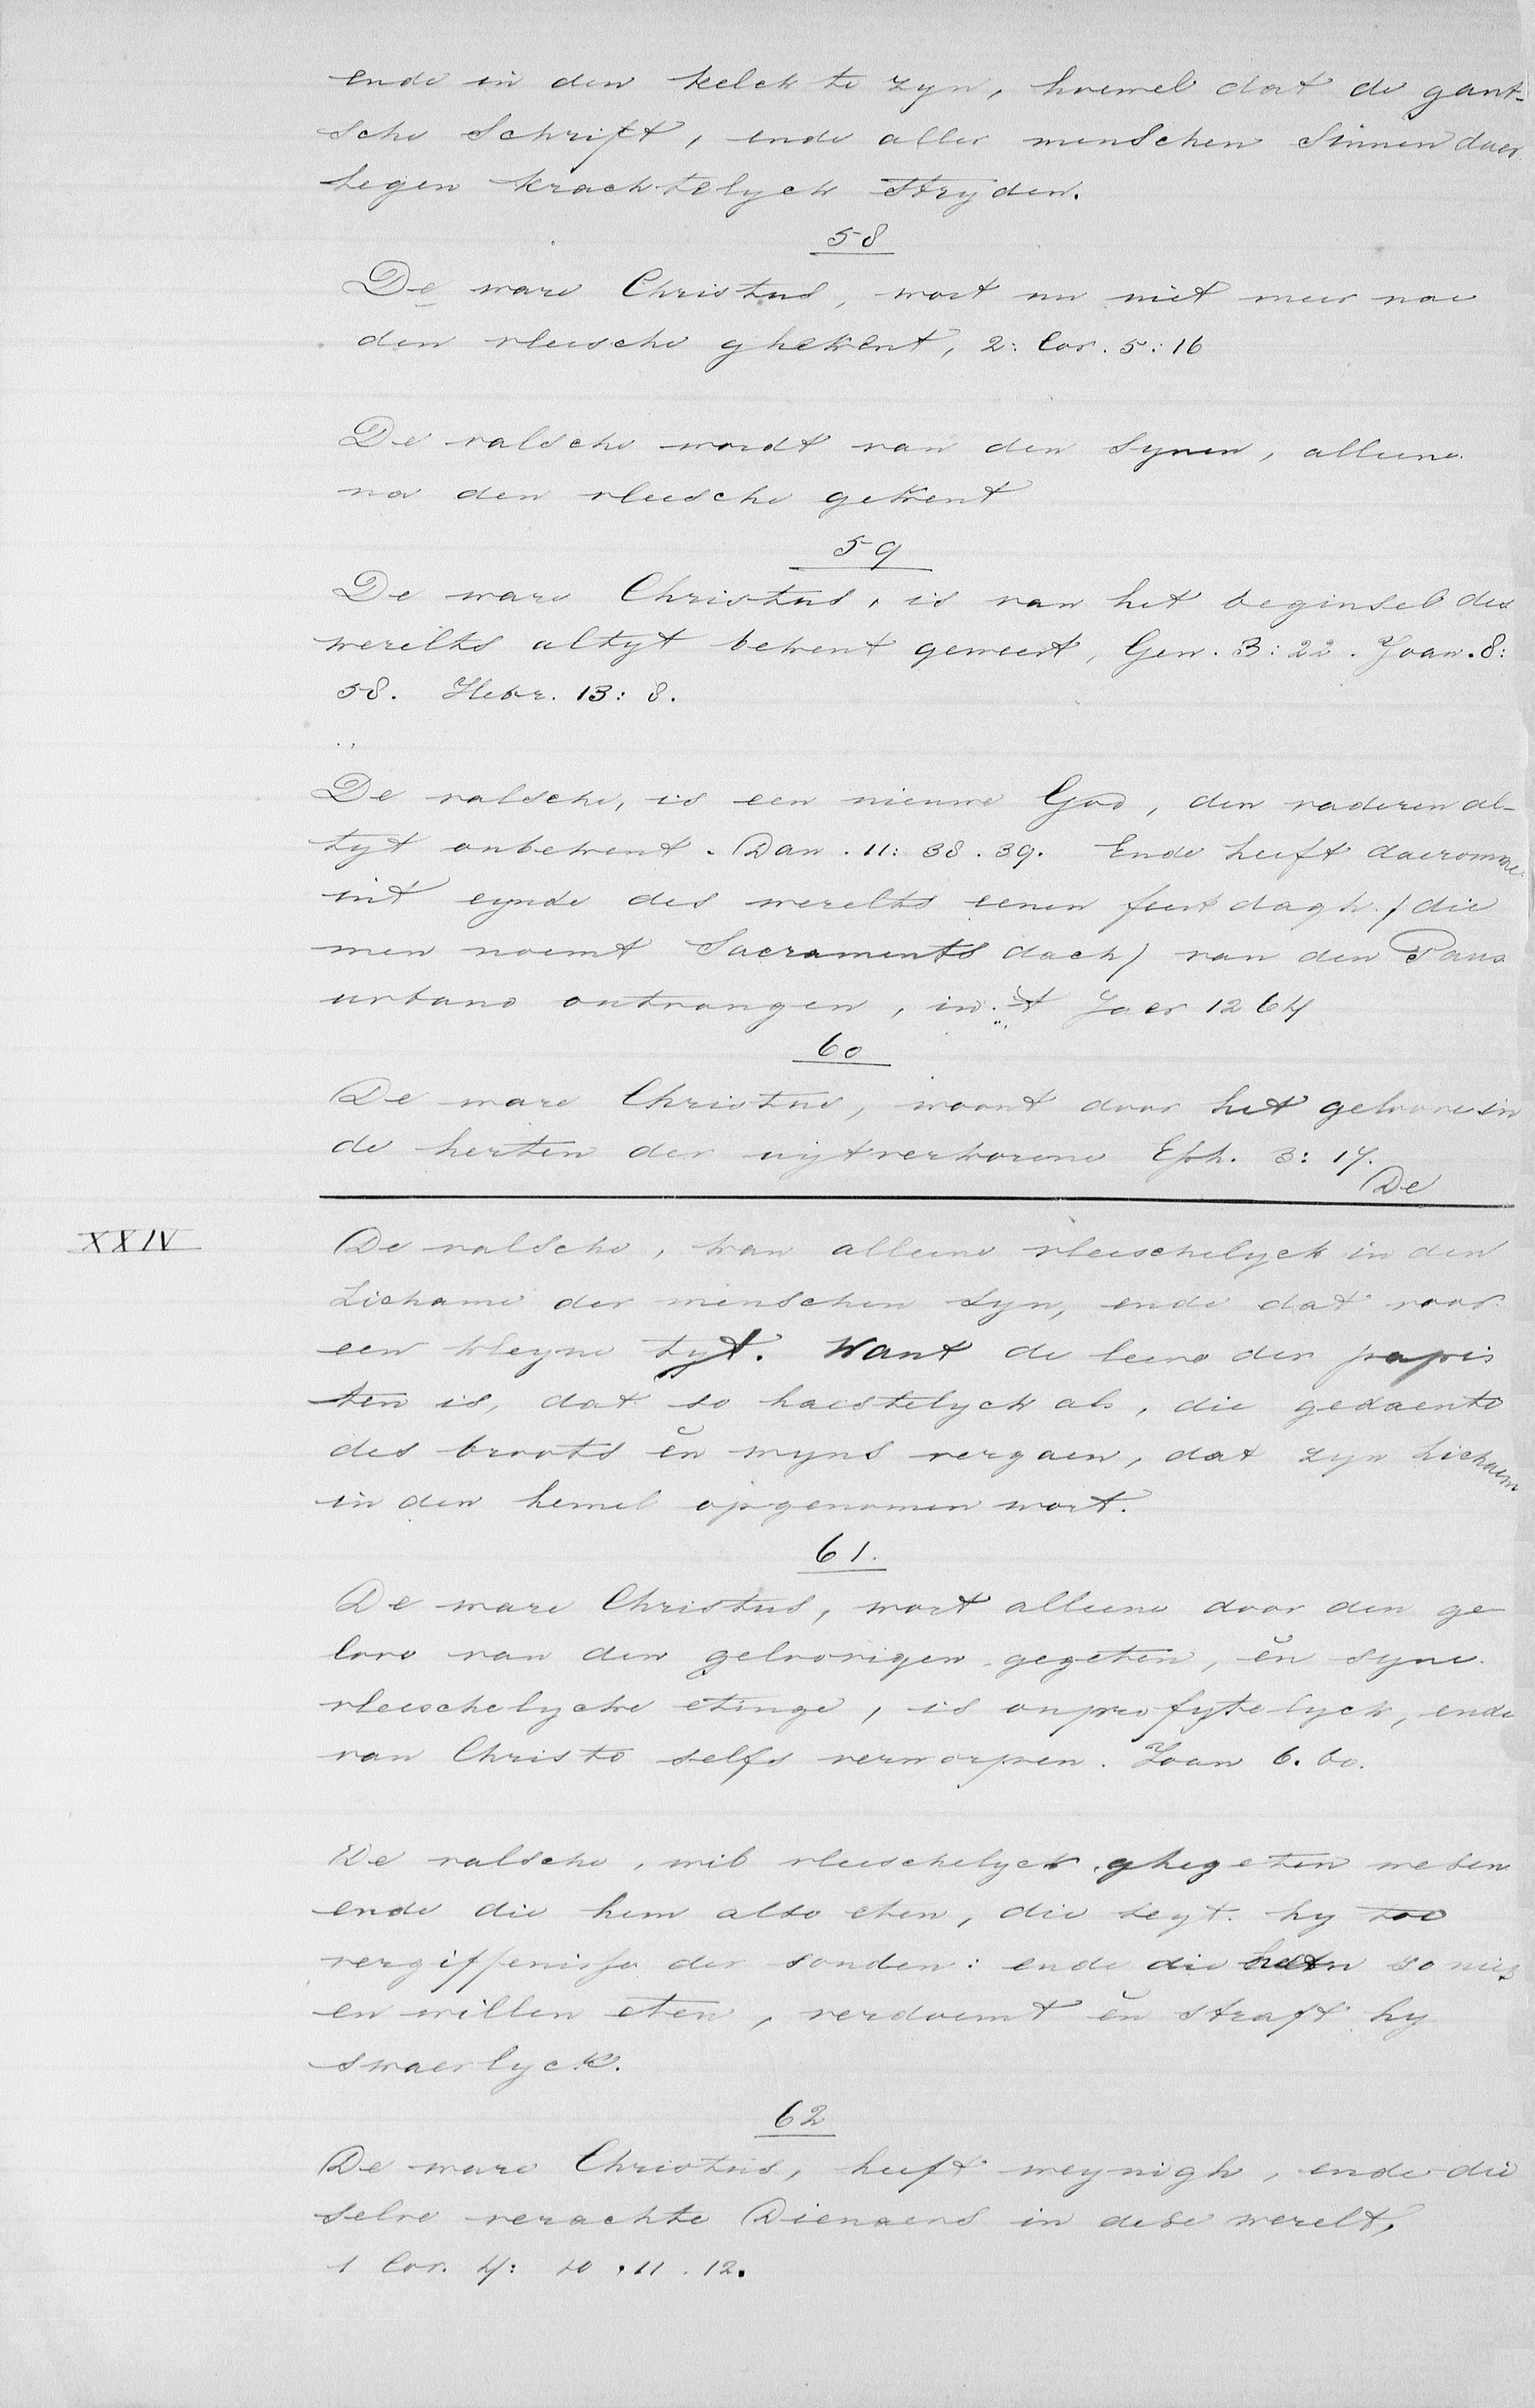 ende in den kelck te zyn, hoewel dat de gant-
sche Schrift, ende aller menschen Sinnen daer
tegen krachtelyck Stryden.
58
De ware Christus, wort nu niet meer nae
den vleesche ghekent, 2: Cor. 5:16
De valsche wordt van den Synen, alleene
na den vleesche gekent
59
De ware Christus, is van het beginsel des
werelts altyt bekent geweest, Gen. 3:22. Joan. 8:
58. Hebr. 13: 8.
De valsche, is een nieuwe God, den vaderen al-
tyt onbekent. Dan. 11: 38. 39. Ende heeft daeromme
int eynde des werelts eenen feest dagh / die
men noemt Sacraments dach) van den Paus
urbano ontvangen, in 't Jaer 1264
60
De ware Christus, woont door het geloove in
de herten der uytverkorene Eph. 3: 17.
De
XXIV
De valsche, kan alleene vleeschelyck in den
Lichame der menschen zyn, ende dat voor
een kleyne tyt. Want de leere der papis
ten is, dat so haestelyck als, die gedaente
des broots en wyns vergaen, dat zyn Lichaem
in den hemel opgenomen wort.
61.
De ware Christus, wort alleene door den ge
love van den gelovigen gegeten, en syne
vleeschelycke etinge, is onprofytelyck, ende
van Christo selfs verworpen. Joan 6. 60.
De valsche, wil vleeschelyck ghegeten wesen
ende die hem also eten, die seyt hy toe
vergiffenisse der sonden: ende die hem so niet
en willen eten, verdoemt en straft hy
swaerlyck.
62
De ware Christus, heeft weynigh, ende die
selve verachte Dienaers in dese werelt,
1 Cor. 4: 10. 11. 12.